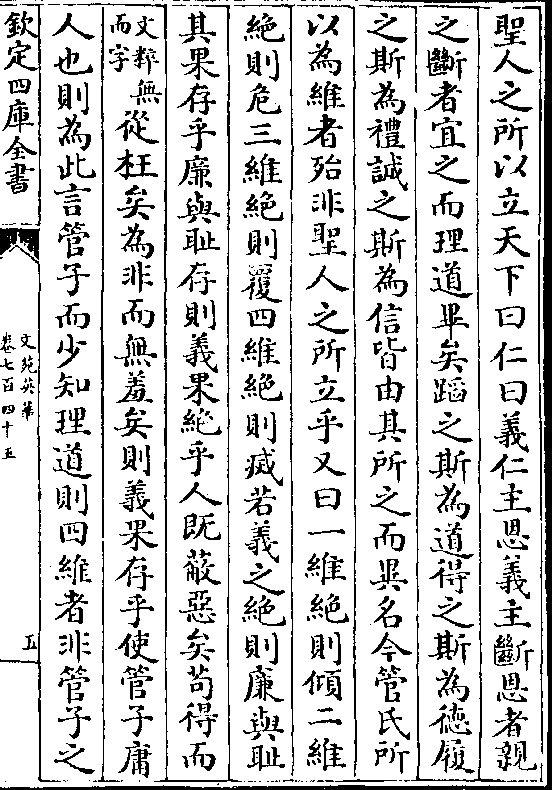 聖人之所以立天下曰仁曰義仁主恩義主斷恩者親
之斷者宜之而理道畢矣蹈之斯為道得之斯為德履
之斯為禮誠之斯為信皆由其所之而異名今管氏所
以為維者殆非聖人之所立乎又曰一維絶則傾二維
絶則危三維絶則覆四維絶則滅若義之絶則廉與耻
其果存乎廉與耻存則義果絶乎人既蔽惡矣苟得而
文粹無
而字
從枉矣為非而無羞矣則義果存乎使管子庸
人也則為此言管子而少知理道則四維者非管子之
欽定四庫全書
文苑英華
卷七百四十五
五